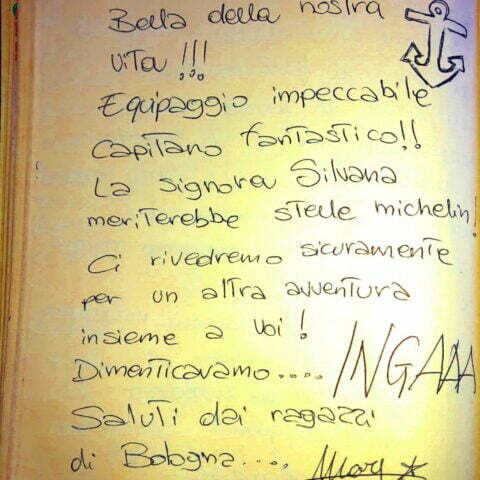 Bella della nostra
vita !!!
Equipaggio impeccabile
Capitano fantastico!!
La signora Silvana
meriterebbe stelle michelin!
Ci rivedremo sicuramente
per un altra avventura
insieme a voi !
Dimenticavamo.... INGAAAA
Saluti dai ragazzi
di Bologna....  Mary